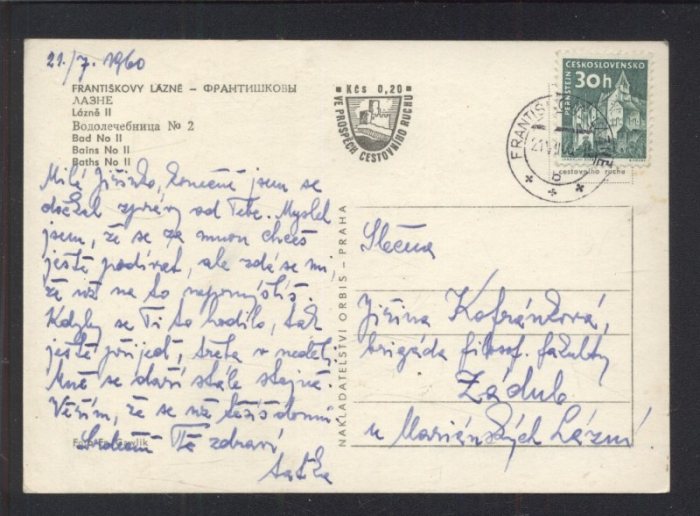 21./7. 1960
FRANTIŠKOVY LÁZNĚ – ФРАНТИШКОВЫ
ЛАЗНЕ
Lázně II
Водолечебница № 2
Bad No II
Bains No II
Baths No II
Milá Jiřinko, konečně jsem se
dočkal zprávy od Tebe. Myslel
jsem, že se za mnou chceš
ještě podívat, ale zdá se mi,
že už na to nepomýšlíš.
Kdyby se Ti to hodilo, tak
ještě přijeď, třeba v neděli.
Mně se daří stále stejně.
Věřím, že se už těšíš domů.
Srdečně Tě zdraví
Foto Fr. Gavlík
KČS 0,20
VE PROSPĚCH CESTOVNÍHO RUCHU
ČESKOSLOVENSKO
PERNŠTEJN
30h
FRANTIŠKOVY
cestovního ruchu
NAKLADATELSTVÍ ORBIS – PRAHA
Slečna
Jiřina Kofránková,
brigáda filosof. fakulty
Zádub
u Mariánských Lázní